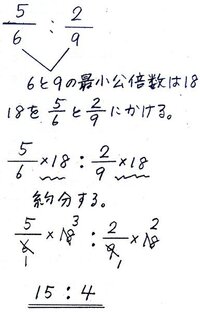 5/6 : 2/9
6と9の最小公倍数は18
18を 5/6 と 2/9 にかける。
5/6 ×18 : 2/9 ×18
約分する。
5/6 1 ×18 3 : 2/9 1 ×18 2
15 : 4